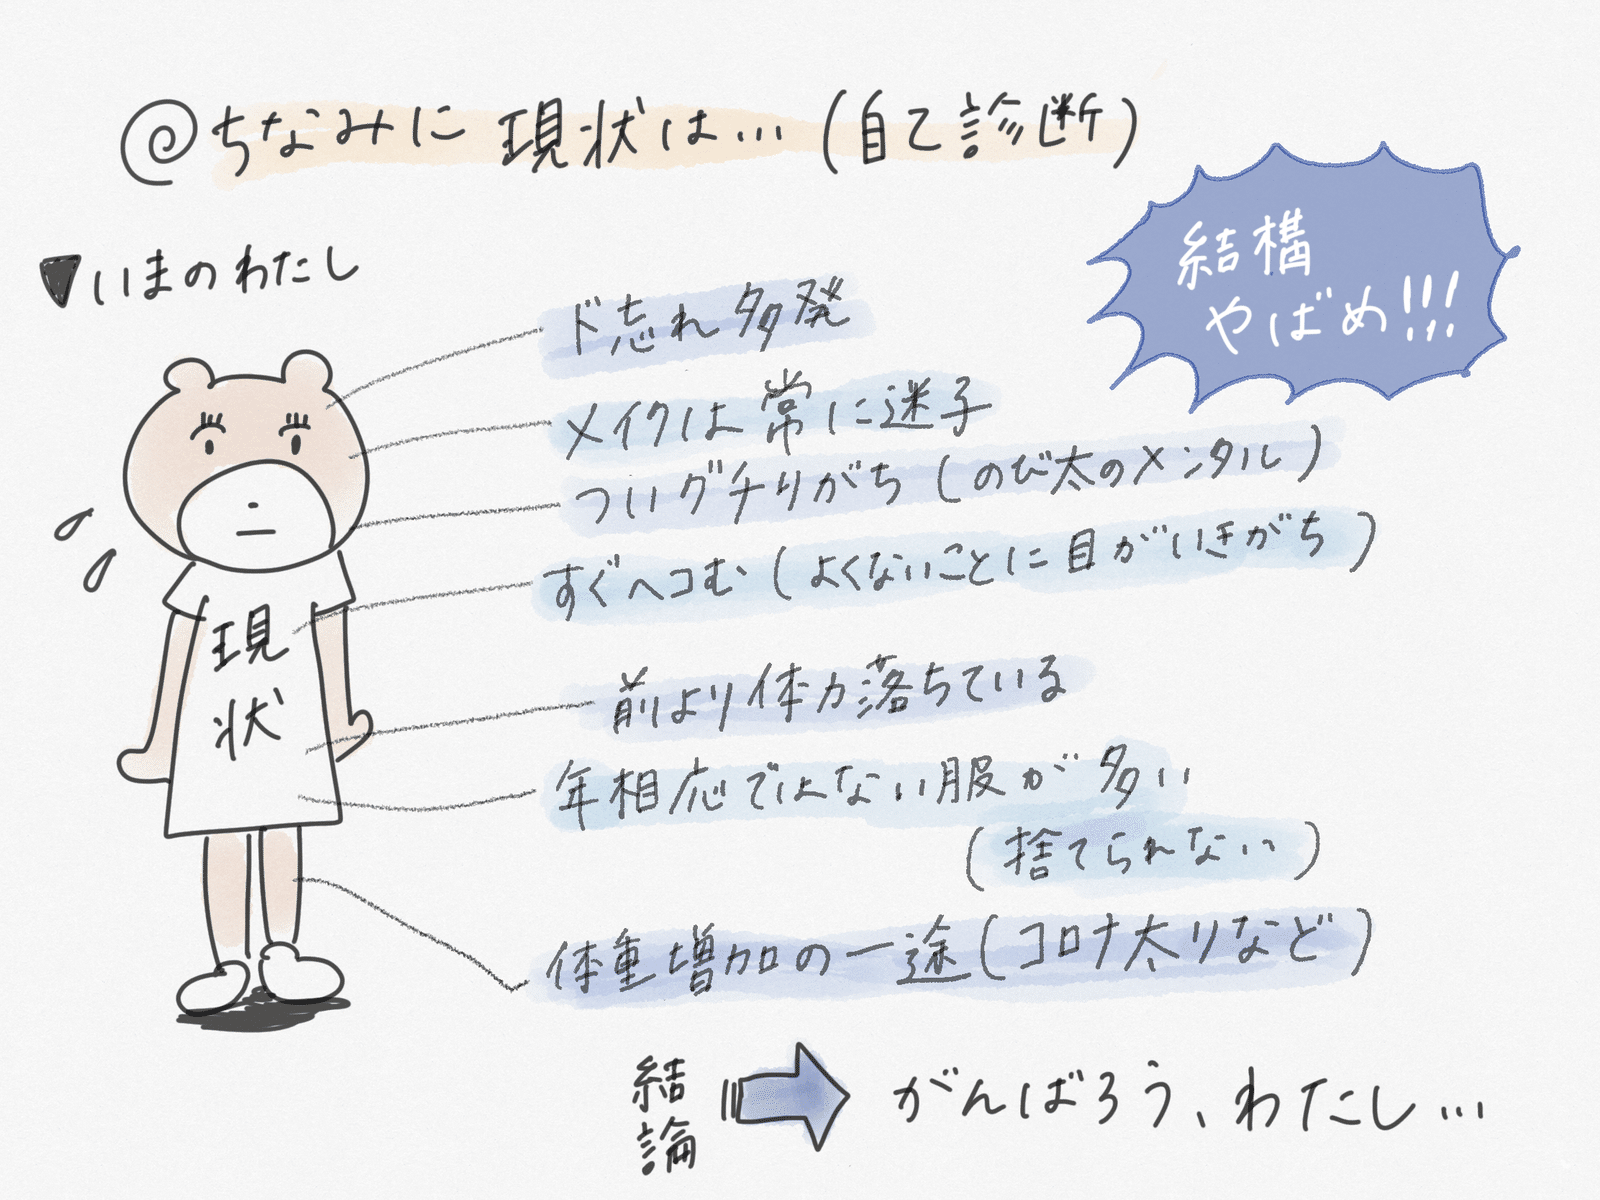 @ちなみに 現状は…(自己診断)
結構
やばめ!!!
▼いまのわたし
ド忘れ多発
メイクは常に迷子
ついグチりがち(のび太のメンタル)
すぐヘコむ(よくないことに目がいきがち)
現
状
前より体力落ちている
年相応ではない服が多い
(捨てられない)
体重増加の一途(コロナ太りなど)
結
論
がんばろう、わたし…